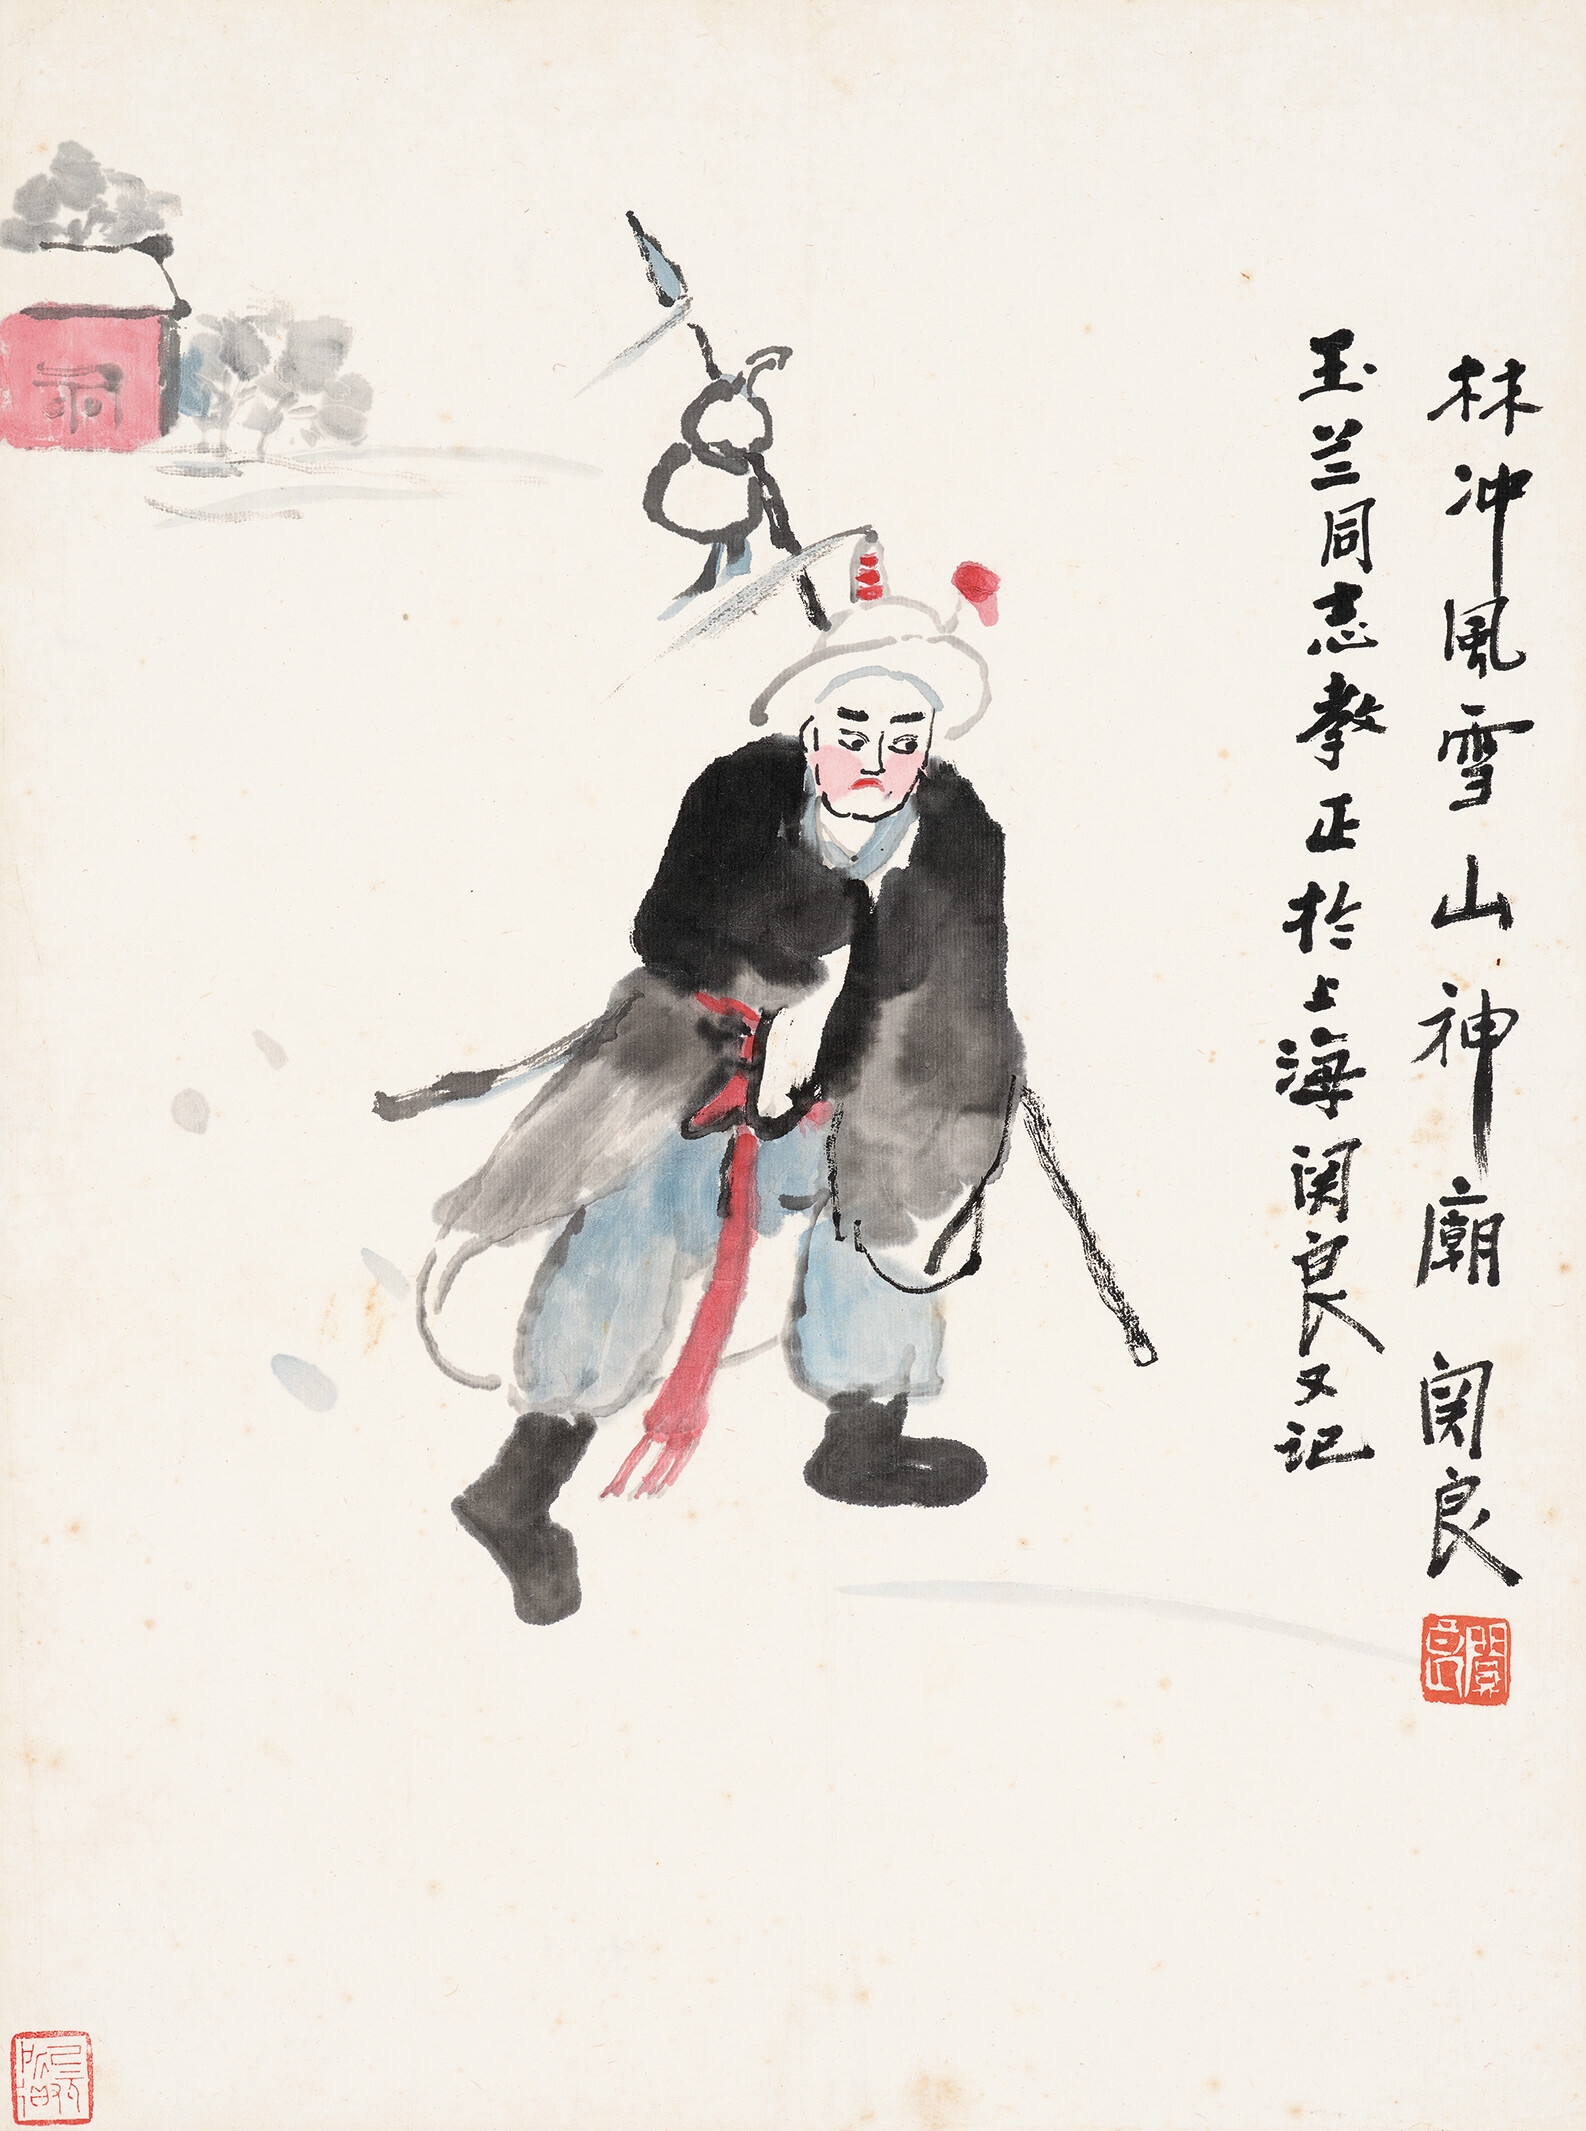 林冲風雪山神廟 関良
玉兰同志教正於上海関良又记
関良